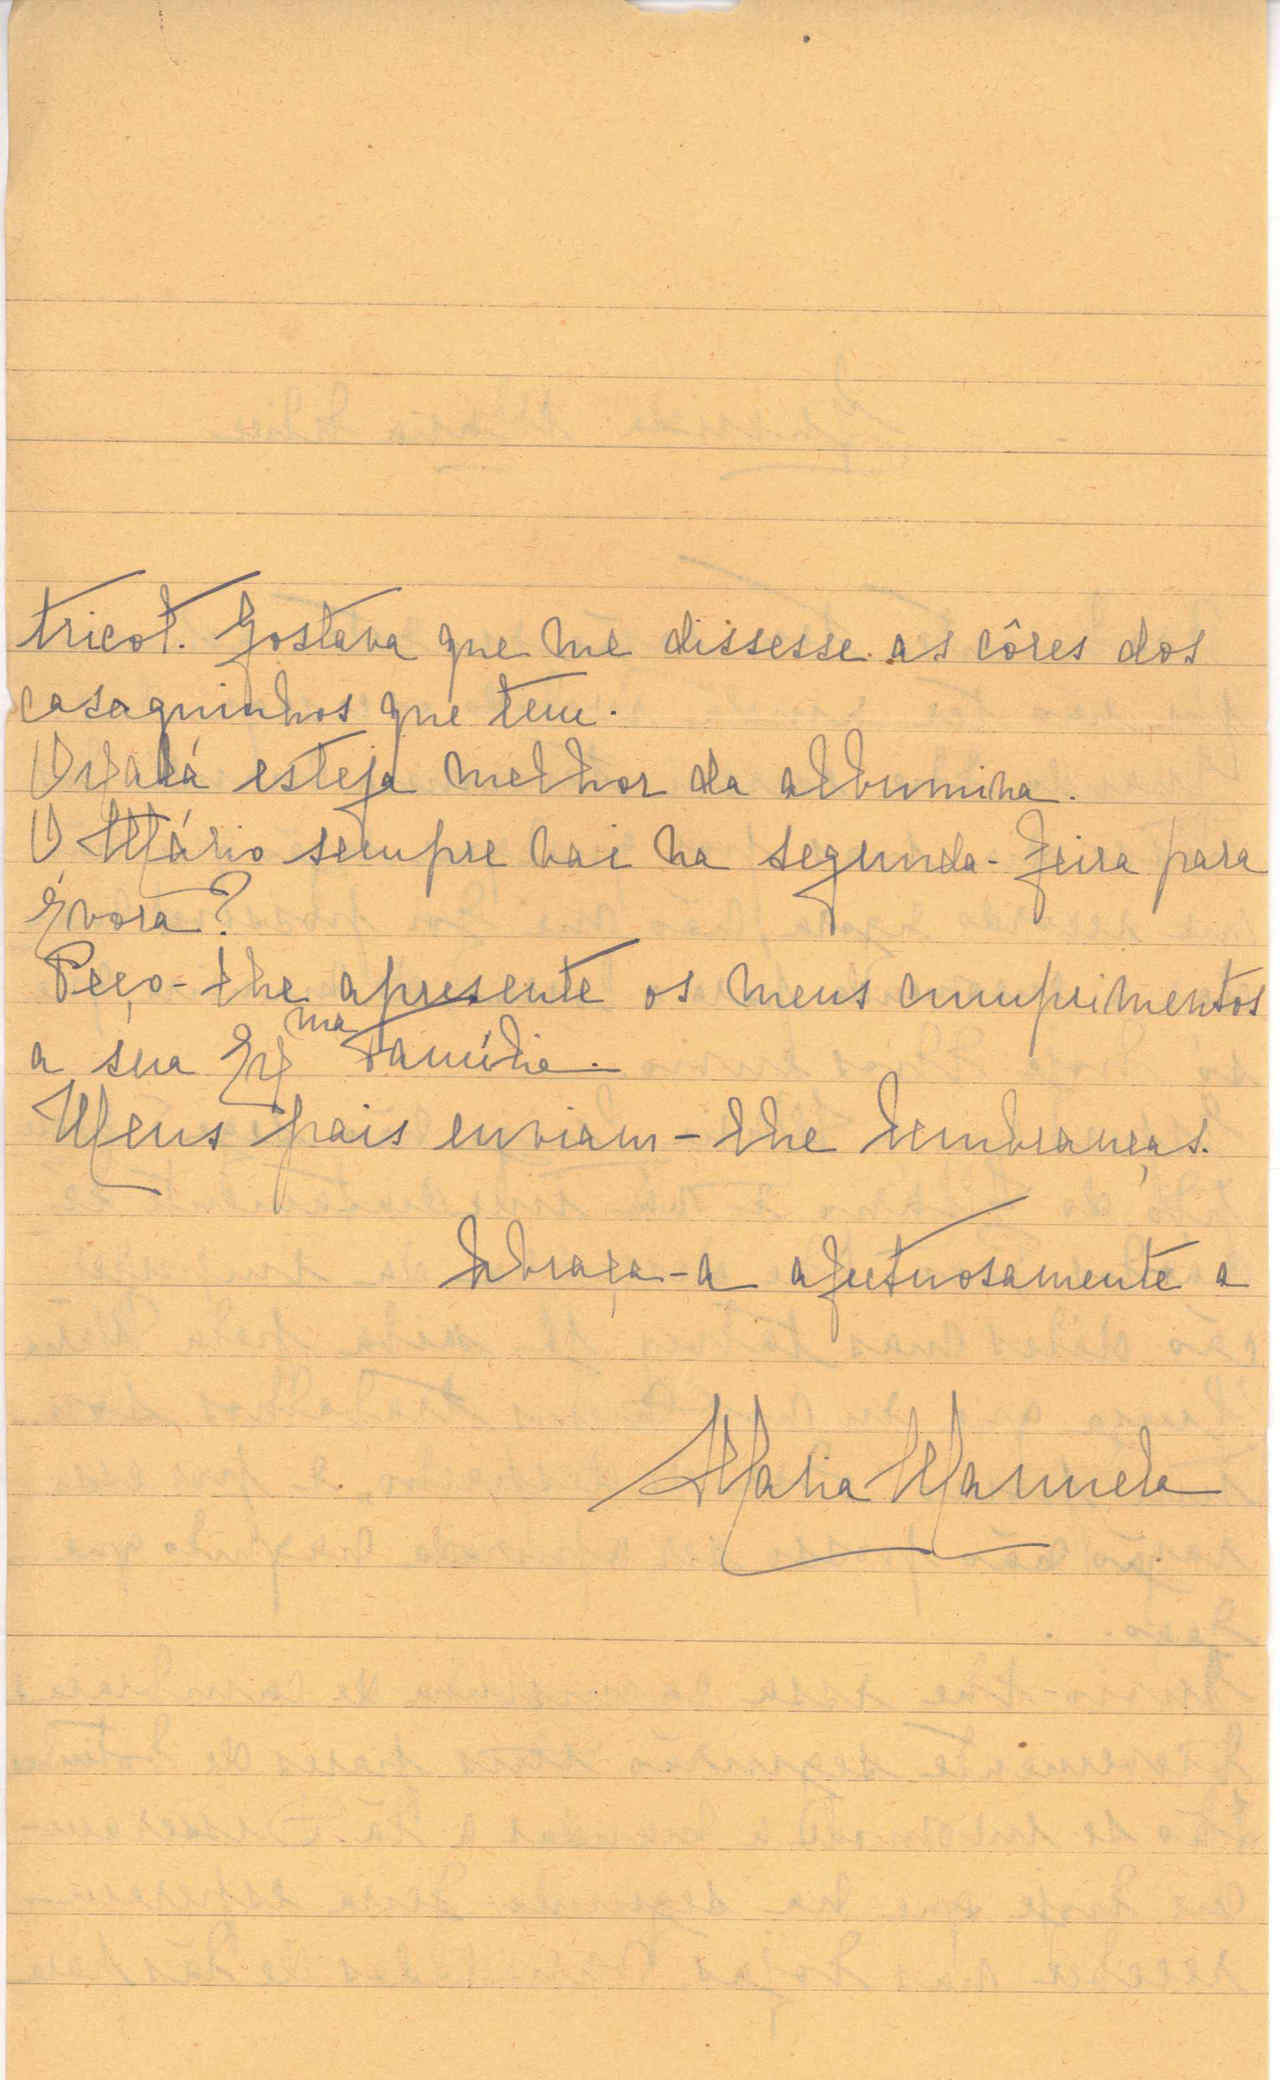 tricot. Gostava que me dissesse as côres dos
casaquinhos que tem.
Oxalá esteja melhor da albumina.
O Mário sempre vai na segunda-feira para
Évora?
Peço-lhe apresente os meus cumprimentos
a sua Exma Família.
Meus pais enviam-lhe lembranças.
Abraça-a afectuosamente a
Maria Manuela